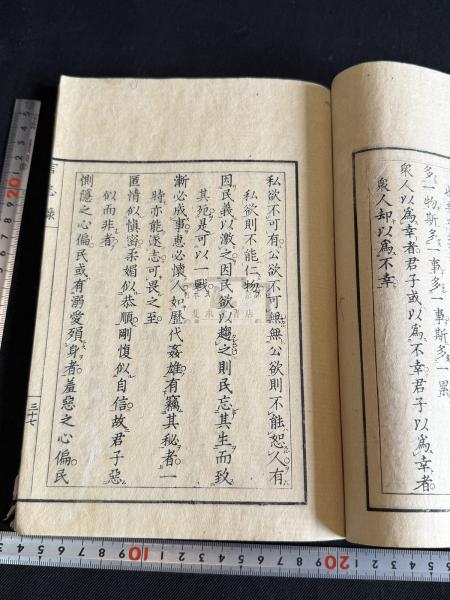 多一物斯多一事多一事斯多一累
衆人以爲幸者君子或以爲不幸君子以爲幸者
衆人却以爲不幸
私欲不可有公欲不可無無公欲則不能恕人有
私欲則不能仁物
因民義以激之因民欲以趨之則民忘其生而致
其死是可以一戰
漸必成事惠必懷人如歷代姦雄有竊其秘者一
時亦能遂志可畏之至
匿情似愼密柔媚似恭順剛愎似自信故君子惡
似而非者
惻隱之心偏民或有溺愛殞身者羞惡之心偏民
三十七